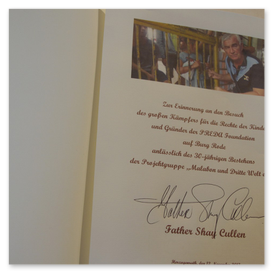 Zur Erinnerung an den Besuch
des großen Kämpfers für die Rechte der Kinder
und Gründer der PREDA Foundation
auf Burg Rode
anlässlich des 10-jährigen Bestehens
der Projektgruppe „Malabon und Dritte Welt
Father Shay Cullen
Father Shay Cullen
Herzogenrath